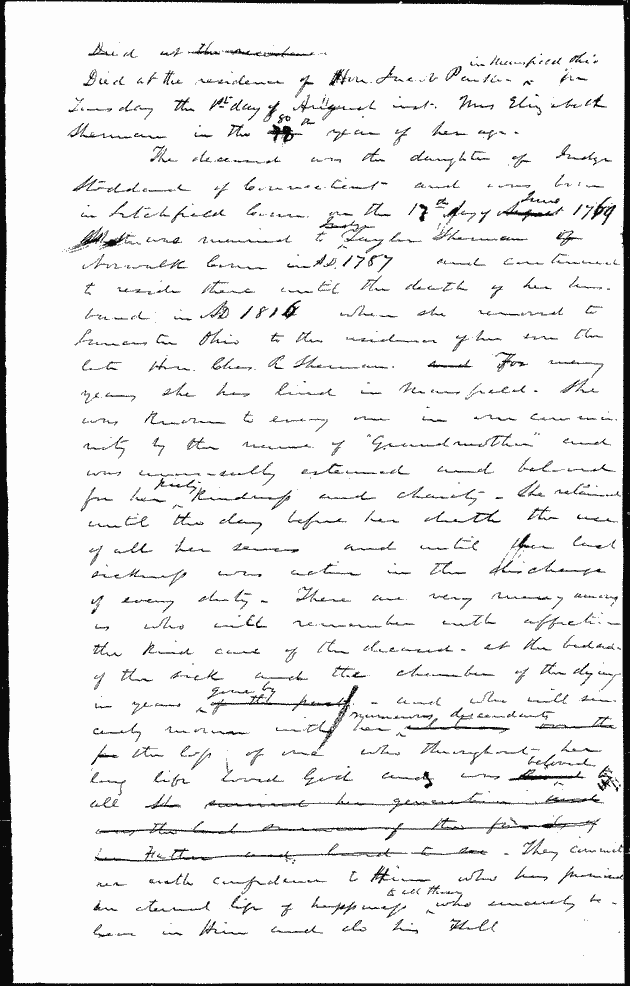 Died at the residence
in Mansfield Ohio
Died at the residence of Hon. Jacob Parker on
Tuesday the 1st day of August inst. Mrs Elizabeth
80
Sherman in the th year of her age.
The deceased was the daughter of Judge
Stoddard of Connecticut and was born
June
in Litchfield Conn. on the 17th day of August 1769
Judy
was married to Taylor Sherman of
Norwalk Conn in A.D. 1787 and continued
to reside there until the death of her hus-
band in AD 1816 when she removed to
Lancaster Ohio to the residence of her son the
late Hon. Chas. R Sherman. and For many
years she has lived in Mansfield. She
was known to every one in our commu-
nity by the name of "Grandmother" and
was universally esteemed and beloved
piety
for her kindness and charity. She retained
until the day before her death the use
of all her senses and until her last
sickness was active in the discharge
of every duty. There are very many among
us who will remember with affection
the kind care of the deceased at the bedside
of the sick and the chamber of the dying
gone by
in years of the past. and who will sin-
numerous descendants
cerely mourn with her over the
for the loss of one who throughout her
beloved
long life loved God and was by
all She survived her generation and
was the last survivor of the family of
her Father and lived to see. They commit
her with confidence to Him who has promised
to all those
an eternal life of happiness who sincerely be-
lieve in Him and do his Will